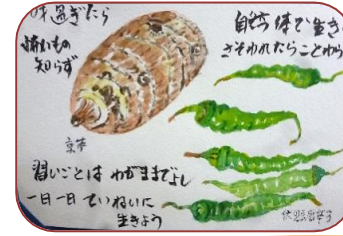 過ぎたら
怖いもの
知らず
自然体で生き
さそわれたらことわら
京芋
習いごとは わがままでよし
一日一日ていねいに
生きよう